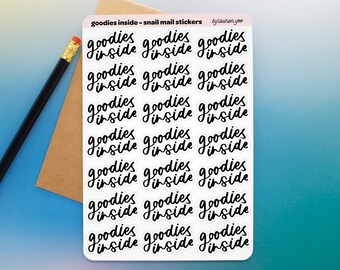 goodies inside - snail mail stickers
by lauren yoo
goodies
inside
goodies
inside
goodies
inside
goodies
inside
goodies
inside
goodies
inside
goodies
inside
goodies
inside
goodies
inside
goodies
inside
goodies
inside
goodies
inside
goodies
inside
goodies
inside
goodies
inside
goodies
inside
goodies
inside
goodies
inside
goodies
inside
goodies
inside
goodies
inside